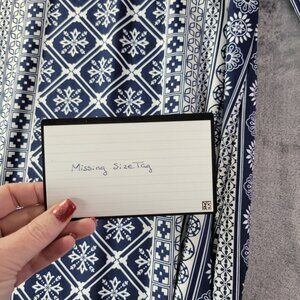 Missing Size Tag